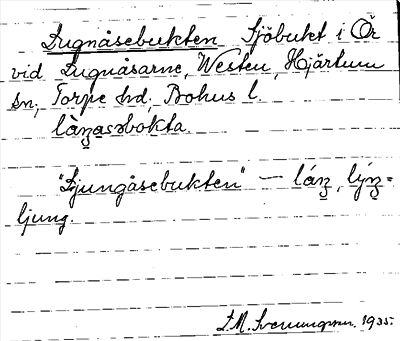 Lugnåsebukten Sjöbukt i Ör
vid Lugnåsarne, Westen, Hjärtum
sn, Torpe hd, Bohus l.
làṉasəbokta.
"Ljungåsebukten" — láṉ, lýṉ =
ljung.
S.M. Svenungsson. 1935.